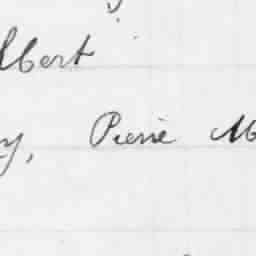 lbert
y, Pierre M